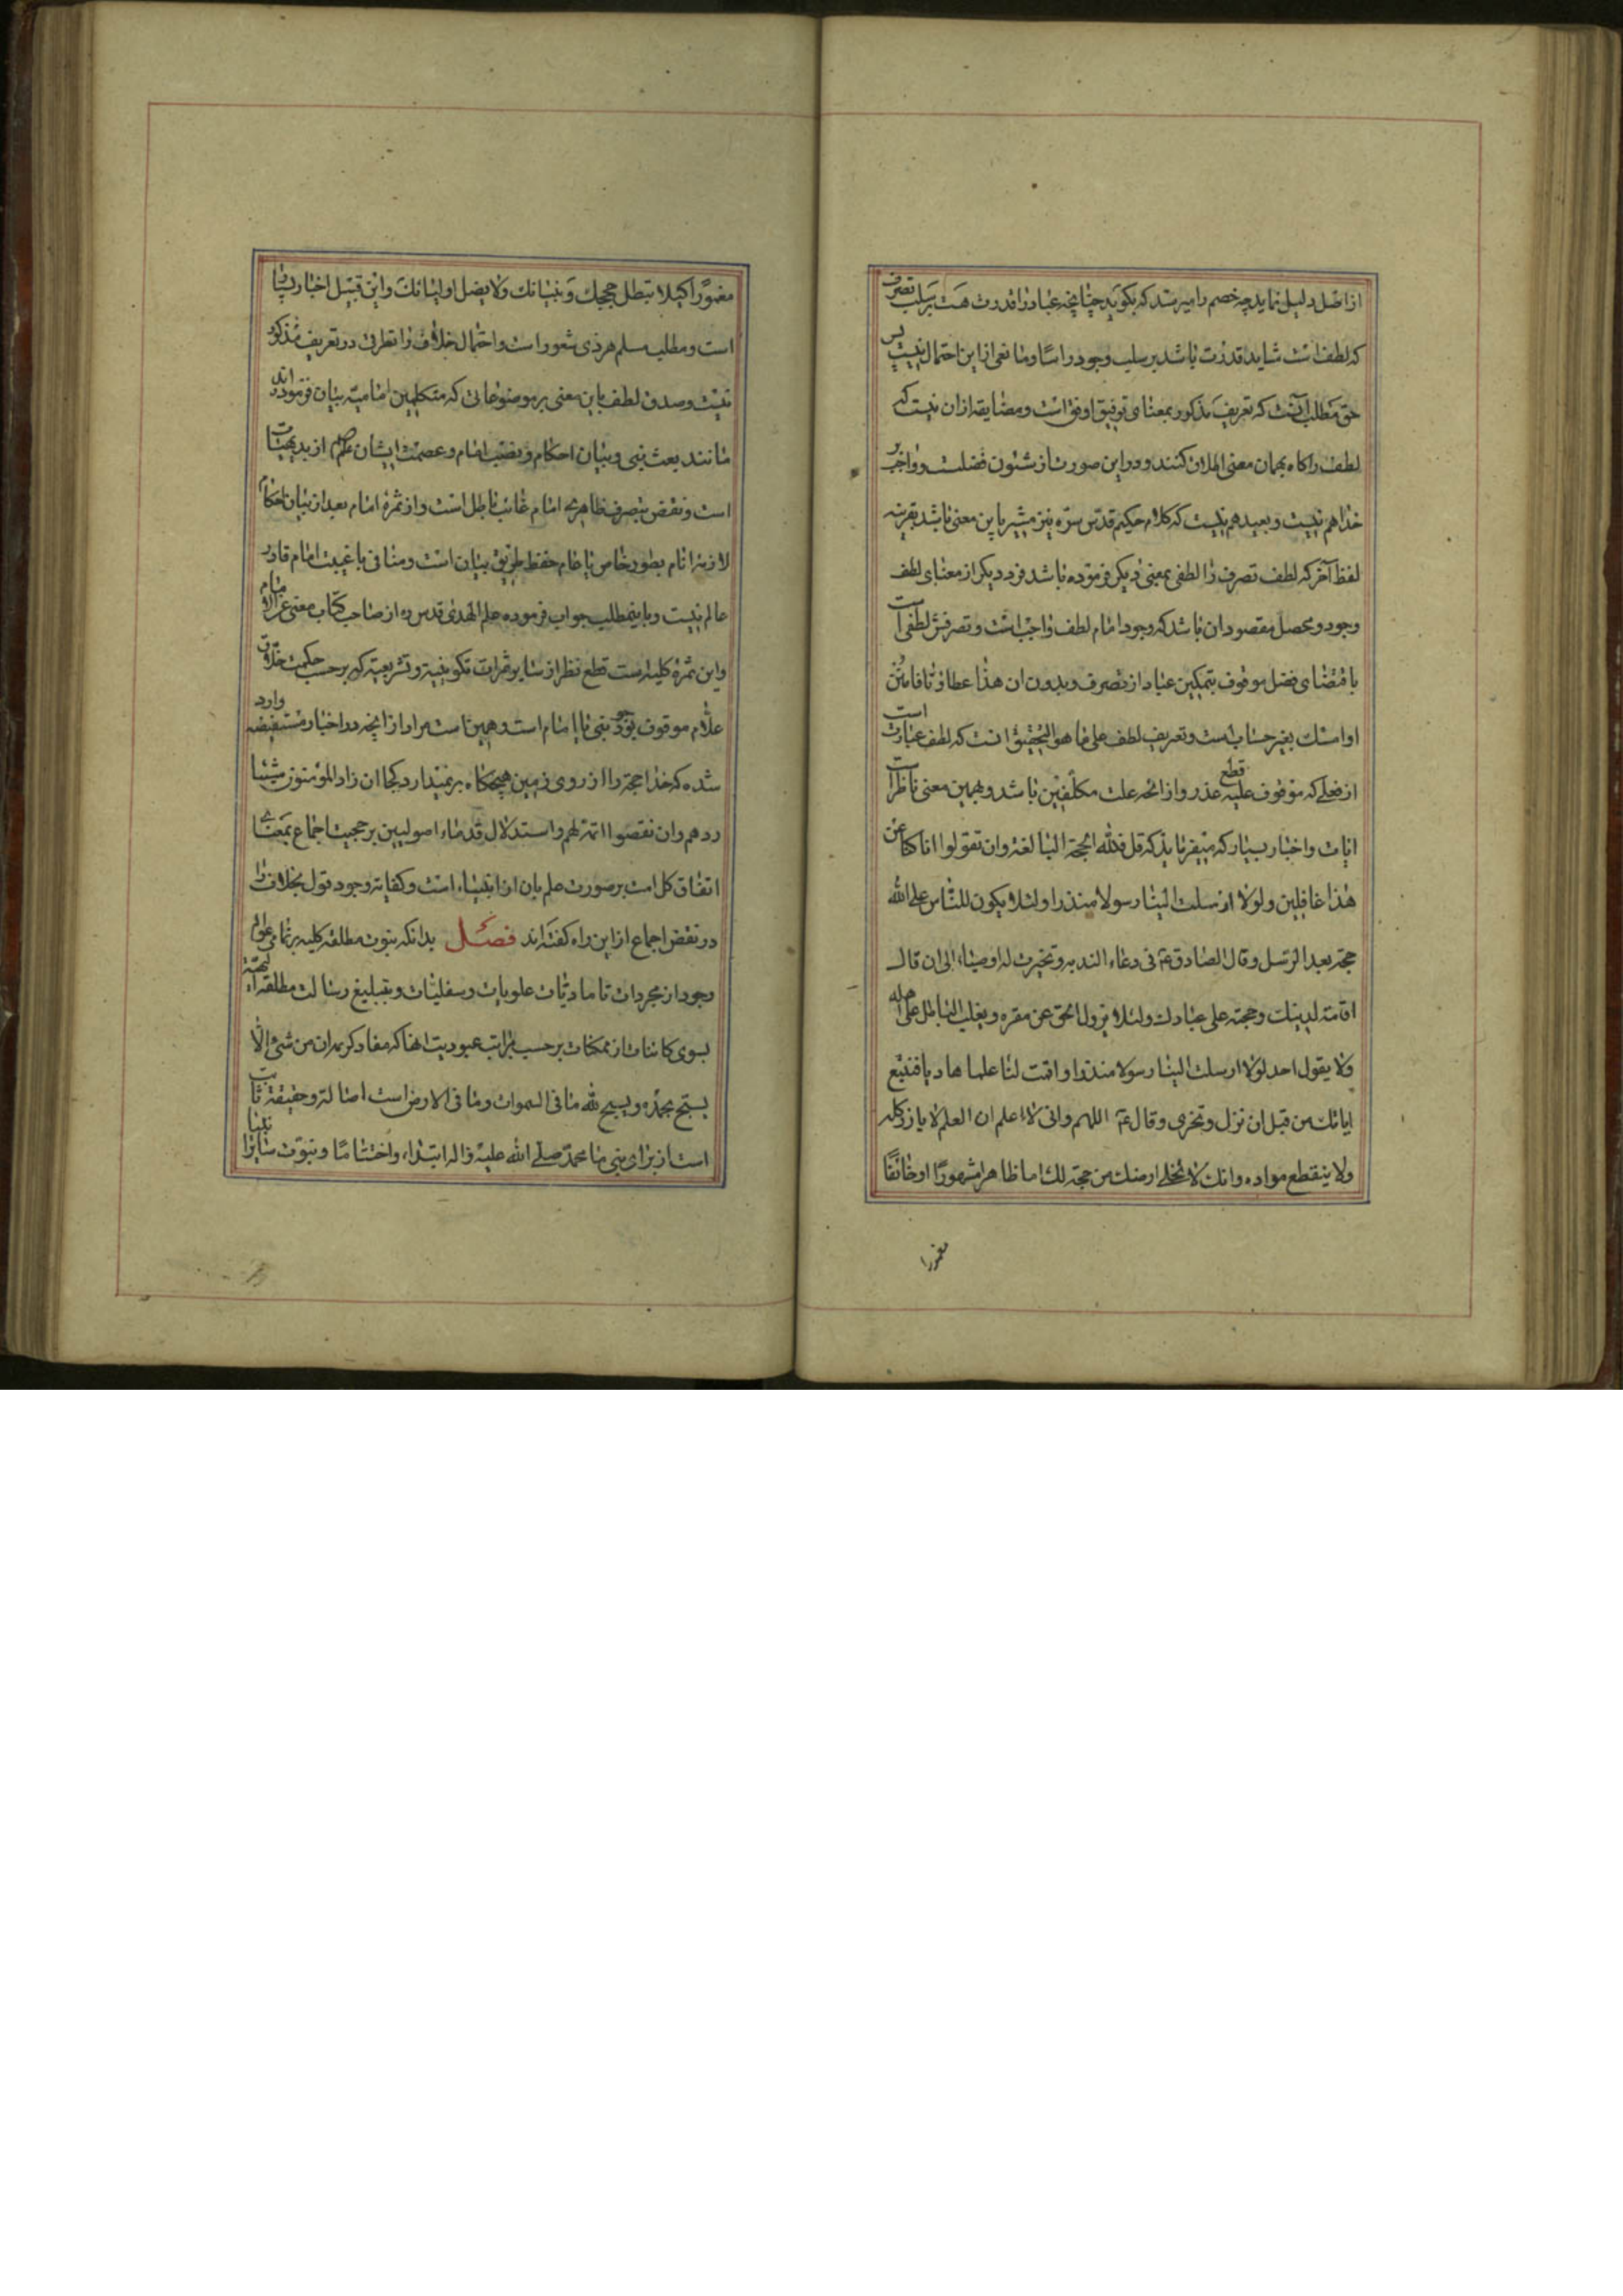 از اصل دلیل نماید چه خصم را میرسد که بگوید چنانچه عباد را قدرت هست بر سلب تصرف
که لطف است شاید قدرت باشد بر سلب وجود راسا و مانعی از این احتمال نیست پس
حق مطلب آنست که تعریف مذکور بمعنای توفیق اوفق است و مضایقه از آن نیست که
لطف را کاه بهمان معنی اطلاق کنند و در این صورت از شئون فضلست و واجب بر
خدا هم نیست و بعید هم نیست که کلام حکیم قدس سره نیز مشیر باین معنی باشد بقرینه
لفظ آخر که لطف تصرف را لطفی بمعنی دیکر فرموده باشد فرد دیکر از معنای لطف
وجود و محصل مقصود ان باشد که وجود امام لطف واجب است و تصرفش لطفی است
باقتضای فضل موقوف بتمکین عباد از تصرف و بدون ان هذا عطاؤنا فامنن
او امسک بغیر حساب است و تعریف لطف علی ما هو التحقیق انست که لطف عبارت است
از فعلی که موقوف علیه قطع عذر و ازاحه علت مکلفین باشد و بهمین معنی ناظر است
ایات و اخبار بسیار که میفرماید که قل فلله الحجة البالغة و ان تقولوا انا کنا عن
هذا غافلین و لولا ارسلت الینا رسولا منذرا و لئلا یکون للناس علی الله
حجة بعد الرسل و قال الصادق ع فی دعاء الندبه و تخیرت له اوصیاء الی ان قال
اقامة لدینک و حجة علی عبادک و لئلا یزول الحق عن مقره و یغلب الباطل علی اهله
و لا یقول احد لولا ارسلت الینا رسولا منذرا و اقمت لنا علما هادیا فنتبع
ایاتک من قبل ان نزل و نخزی و قال ع اللهم و انی لاعلم ان العلم لا یازر کله
و لا ینقطع مواده و انک لا تخلی ارضک من حجة لک اما ظاهرا مشهورا او خائفا
مغمورا
مغمورا کیلا تبطل حججک و بیناتک و لا یضل اولیائک و از این قبیل اخبار بسیار
است و مطلب مسلم هر ذی شعور است و احتمال خلاف را تطرقی در تعریف مذکور
نیست و صدق لطف باین معنی بر موضوعاتی که متکلمین امامیه بیان فرموده اند
مانند بعث نبی و بیان احکام و نصب امام و عصمت ایشان از بدیهیات
است و نقض بتصرف ظاهری امام غائب باطل است و از ثمره امام بعد از بیان احکام
لازمه انام بطور خاص یا عام حفظ طریق بیان است و منافی با غیبت امام قادر
عالم نیست و باینمطلب جواب فرموده علم الهدی قدس ره از صاحب کتاب مغنی
و این ثمره کلیه است قطع نظر از سایر ثمرات تکوینیه و تشریعیه که بر حسب حکمت خلاق
علام موقوف بوجود نبی یا امام است و همین است مراد از انچه در اخبار مستفیضه وارد
شده که خدا حجة را از روی زمین هیچکاه بر نمیدارد کیما ان زاد المؤمنون شیئا
ردهم و ان نقصوا اتمه لهم و استدلال قدماء اصولیین بر حجیت اجماع بمعنای
اتفاق کل امت بر صورت علم بان از ابتناء است و کفایة وجود قول بخلاف را
در نقض اجماع از این راه کفته اند فصل بدانکه نبوت مطلقه کلیه بر تمامی عوالم
وجود از مجردات تا مادیات علویات و سفلیات و بتبلیغ رسالت مطلقه الهیة
بسوی کائنات از ممکنات بر حسب مراتب عبودیت انها که مفاد کریمه ان من شیء الا
یسبح بحمده و یسبح لله ما فی السموات و ما فی الارض است اصالة و حقیقة ثابت
است از برای نبی ما محمد صلی الله علیه و اله ابتداء و اختتاما و نبوت سایر انبیا